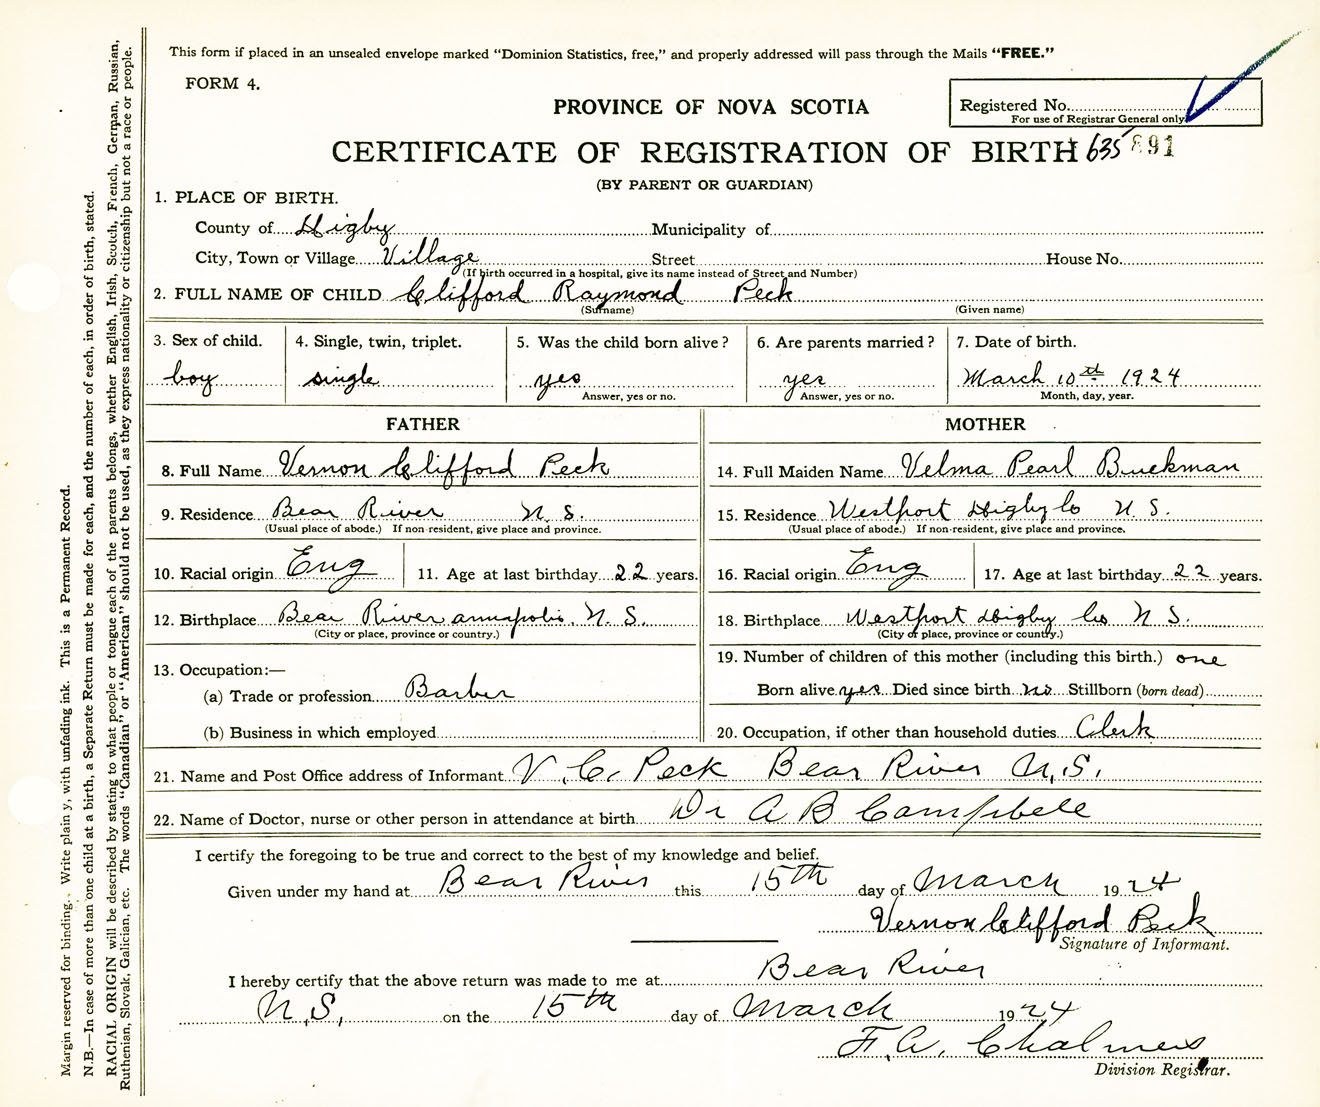 This form if placed in an unsealed envelope marked “Dominion Statistics, free,” and properly addressed will pass through the Mails “FREE.”
FORM 4.
PROVINCE OF NOVA SCOTIA
Registered No.
For use of Registrar General only
CERTIFICATE OF REGISTRATION OF BIRTH 635 891
(BY PARENT OR GUARDIAN)
1. PLACE OF BIRTH.
County of Digby Municipality of
City, Town or Village Village Street House No.
(If birth occurred in a hospital, give its name instead of Street and Number)
2. FULL NAME OF CHILD Clifford Raymond Peck
(Surname) (Given name)
3. Sex of child. 4. Single, twin, triplet. 5. Was the child born alive? 6. Are parents married? 7. Date of birth.
boy single yes yes March 10th 1924
Answer, yes or no. Answer, yes or no. Month, day, year.
FATHER MOTHER
8. Full Name Vernon Clifford Peck 14. Full Maiden Name Velma Pearl Buckman
9. Residence Bear River N.S. 15. Residence Westport Digby Co N.S.
(Usual place of abode.) If non-resident, give place and province. (Usual place of abode.) If non-resident, give place and province.
10. Racial origin Eng 11. Age at last birthday 22 years. 16. Racial origin Eng 17. Age at last birthday 22 years.
12. Birthplace Bear River annapolis. N.S. 18. Birthplace Westport Digby Co N S.
(City or place, province or country.) (City or place, province or country.)
13. Occupation:— 19. Number of children of this mother (including this birth.) one
(a) Trade or profession Barber Born alive yes Died since birth no Stillborn (born dead)
(b) Business in which employed 20. Occupation, if other than household duties Clerk
21. Name and Post Office address of Informant V. C. Peck Bear River N.S.
22. Name of Doctor, nurse or other person in attendance at birth Dr A B Campbell
I certify the foregoing to be true and correct to the best of my knowledge and belief.
Given under my hand at Bear River this 15th day of March 1924
Vernon Clifford Peck
Signature of Informant.
I hereby certify that the above return was made to me at Bear River
N.S. on the 15th day of March 1924
F. A. Chalmers
Division Registrar.
Margin reserved for binding. Write plainy, with unfading ink. This is a Permanent Record.
N.B.—In case of more than one child at a birth, a Separate Return must be made for each, and the number of each, in order of birth, stated.
RACIAL ORIGIN will be described by stating to what people or tongue each of the parents belongs, whether English, Irish, Scotch, French, German, Russian,
Ruthenian, Slovak, Galician, etc. The words “Canadian” or “American” should not be used, as they express nationality or citizenship but not a race or people.